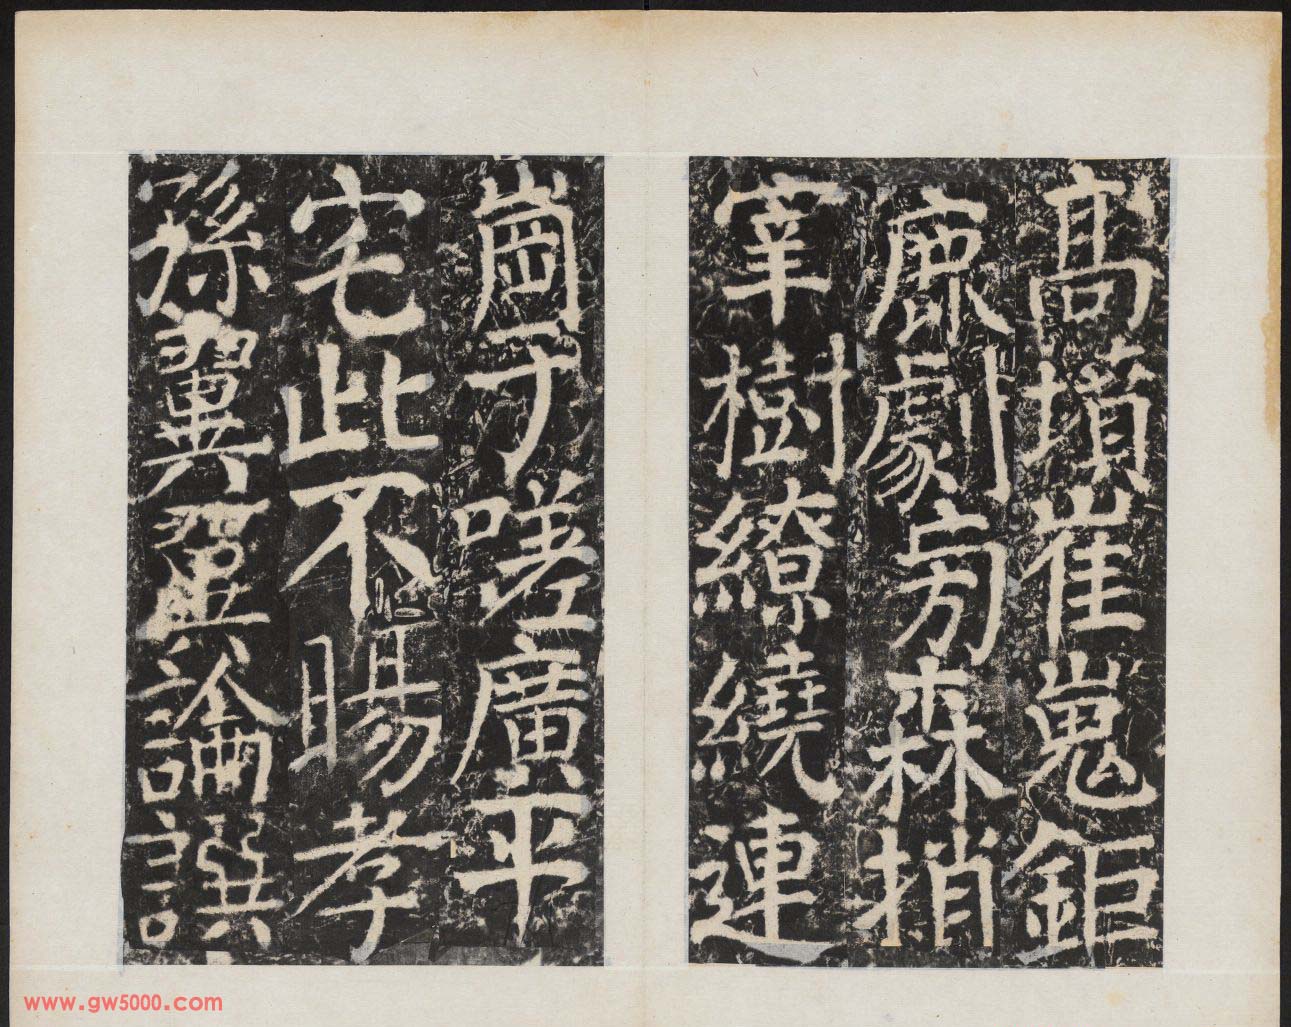 髙墳崔嵬鉅
鹿劇方森捎
宰樹繚繞連
崗于嗟廣平
宅此不暘孝
孫翼論譔
www.gw5000.com